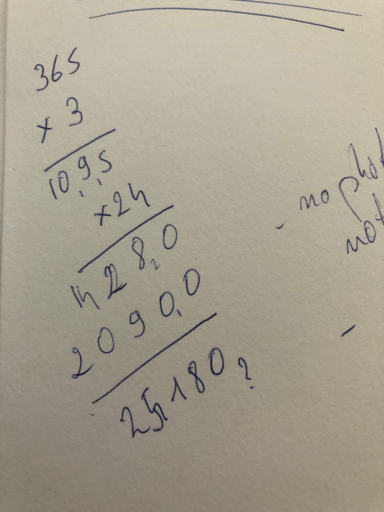 365
x 3
1095
x24
4280
20900
25180?
- no phot
not
-